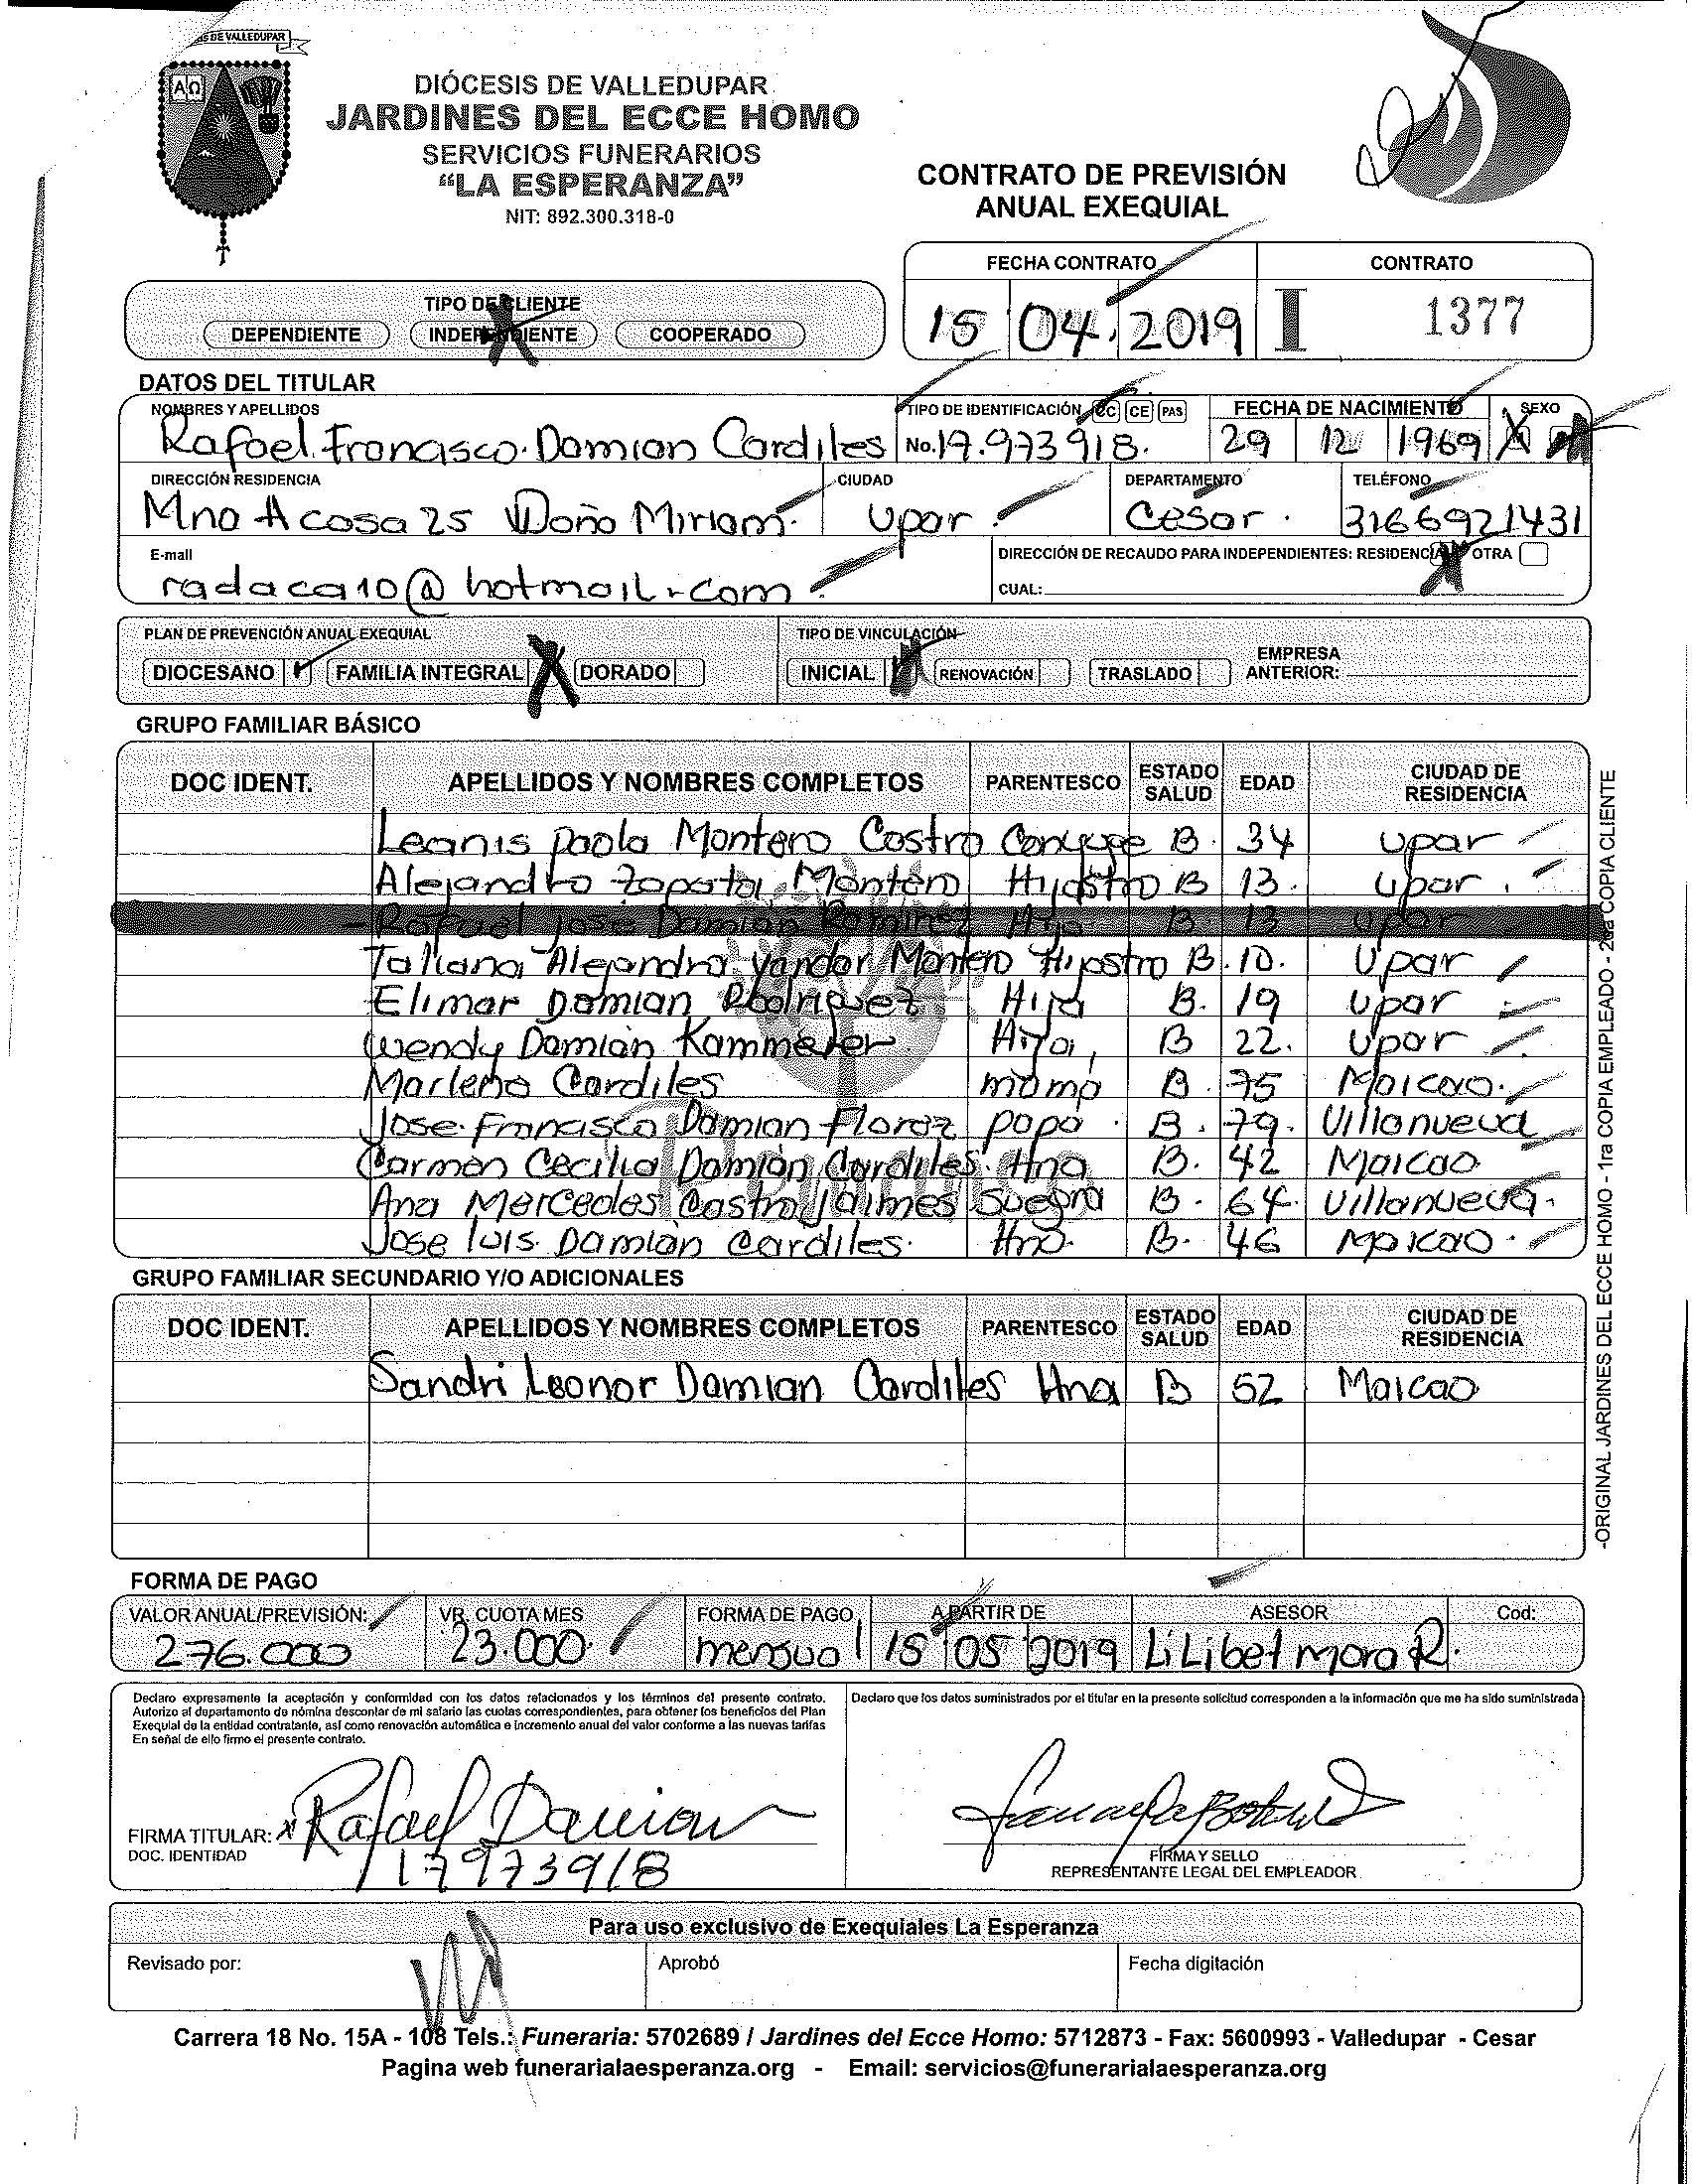 DIÓCESIS DE VALLEDUPAR
JARDINES DEL ECCE HOMO
SERVICIOS FUNERARIOS
“LA ESPERANZA”
NIT: 892.300.318-0
CONTRATO DE PREVISIÓN
ANUAL EXEQUIAL
FECHA CONTRATO CONTRATO
15 04 2019 I 1377
TIPO DE CLIENTE
DEPENDIENTE INDEPENDIENTE COOPERADO
DATOS DEL TITULAR
NOMBRES Y APELLIDOS TIPO DE IDENTIFICACIÓN CC CE PAS FECHA DE NACIMIENTO SEXO
Rafael Francisco Damian Cardiles No. 17.973918. 29 12 1969
DIRECCIÓN RESIDENCIA CIUDAD DEPARTAMENTO TELÉFONO
Mna A casa 25 Doña Miriam. Upar. Cesar. 3166921431
E-mail DIRECCIÓN DE RECAUDO PARA INDEPENDIENTES: RESIDENCIA OTRA
radaca10@hotmail.com CUAL:
PLAN DE PREVENCIÓN ANUAL EXEQUIAL TIPO DE VINCULACIÓN
DIOCESANO FAMILIA INTEGRAL DORADO INICIAL RENOVACIÓN TRASLADO EMPRESA ANTERIOR:
GRUPO FAMILIAR BÁSICO
DOC IDENT. APELLIDOS Y NOMBRES COMPLETOS PARENTESCO ESTADO SALUD EDAD CIUDAD DE RESIDENCIA
Leanis Paola Montero Castro Conyuge B. 34 Upar
Alejandro Zapata Montero Hijastro B 13. Upar.
Rafael Jose Damian Ramirez Hijo B. 13 Upar
Taliana Alejandra Montero Hijastro B. 10. Upar
Elimar Damian Rodriguez Hija B. 19 Upar
Wendy Damian Kammerer Hija, B 22. Upar
Marlene Cardiles mama B. 75 Maicao.
Jose Francisco Damian Florez papa B. 79. Villanueva
Carmen Cecilia Damian Cardiles. Hna B. 42 Maicao
Ana Mercedes Castro Jaimes Suegra B. 64. Villanueva.
Jose luis Damian Cardiles. Hno. B. 46 Maicao.
GRUPO FAMILIAR SECUNDARIO Y/O ADICIONALES
DOC IDENT. APELLIDOS Y NOMBRES COMPLETOS PARENTESCO ESTADO SALUD EDAD CIUDAD DE RESIDENCIA
Sandri Leonor Damian Cardiles Hna B 52 Maicao
FORMA DE PAGO
VALOR ANUAL/PREVISIÓN: VR. CUOTA MES FORMA DE PAGO A PARTIR DE ASESOR Cod:
276.000 23.000 mensual 15 05 2019 LiLibet Mora R.
Declaro expresamente la aceptación y conformidad con los datos relacionados y los términos del presente contrato.
Autorizo al departamento de nómina descontar de mi salario las cuotas correspondientes, para obtener los beneficios del Plan
Exequial de la entidad contratante, así como renovación automática e incremento anual del valor conforme a las nuevas tarifas
En señal de ello firmo el presente contrato.
Declaro que los datos suministrados por el titular en la presente solicitud corresponden a la información que me ha sido suministrada
FIRMA TITULAR: x Rafael Damian
DOC. IDENTIDAD 17973918
FIRMA Y SELLO
REPRESENTANTE LEGAL DEL EMPLEADOR
Para uso exclusivo de Exequiales La Esperanza
Revisado por: Aprobó Fecha digitación
Carrera 18 No. 15A - 108 Tels.: Funeraria: 5702689 / Jardines del Ecce Homo: 5712873 - Fax: 5600993 - Valledupar - Cesar
Pagina web funerarialaesperanza.org - Email: servicios@funerarialaesperanza.org
-ORIGINAL JARDINES DEL ECCE HOMO - 1ra COPIA EMPLEADO - 2da COPIA CLIENTE